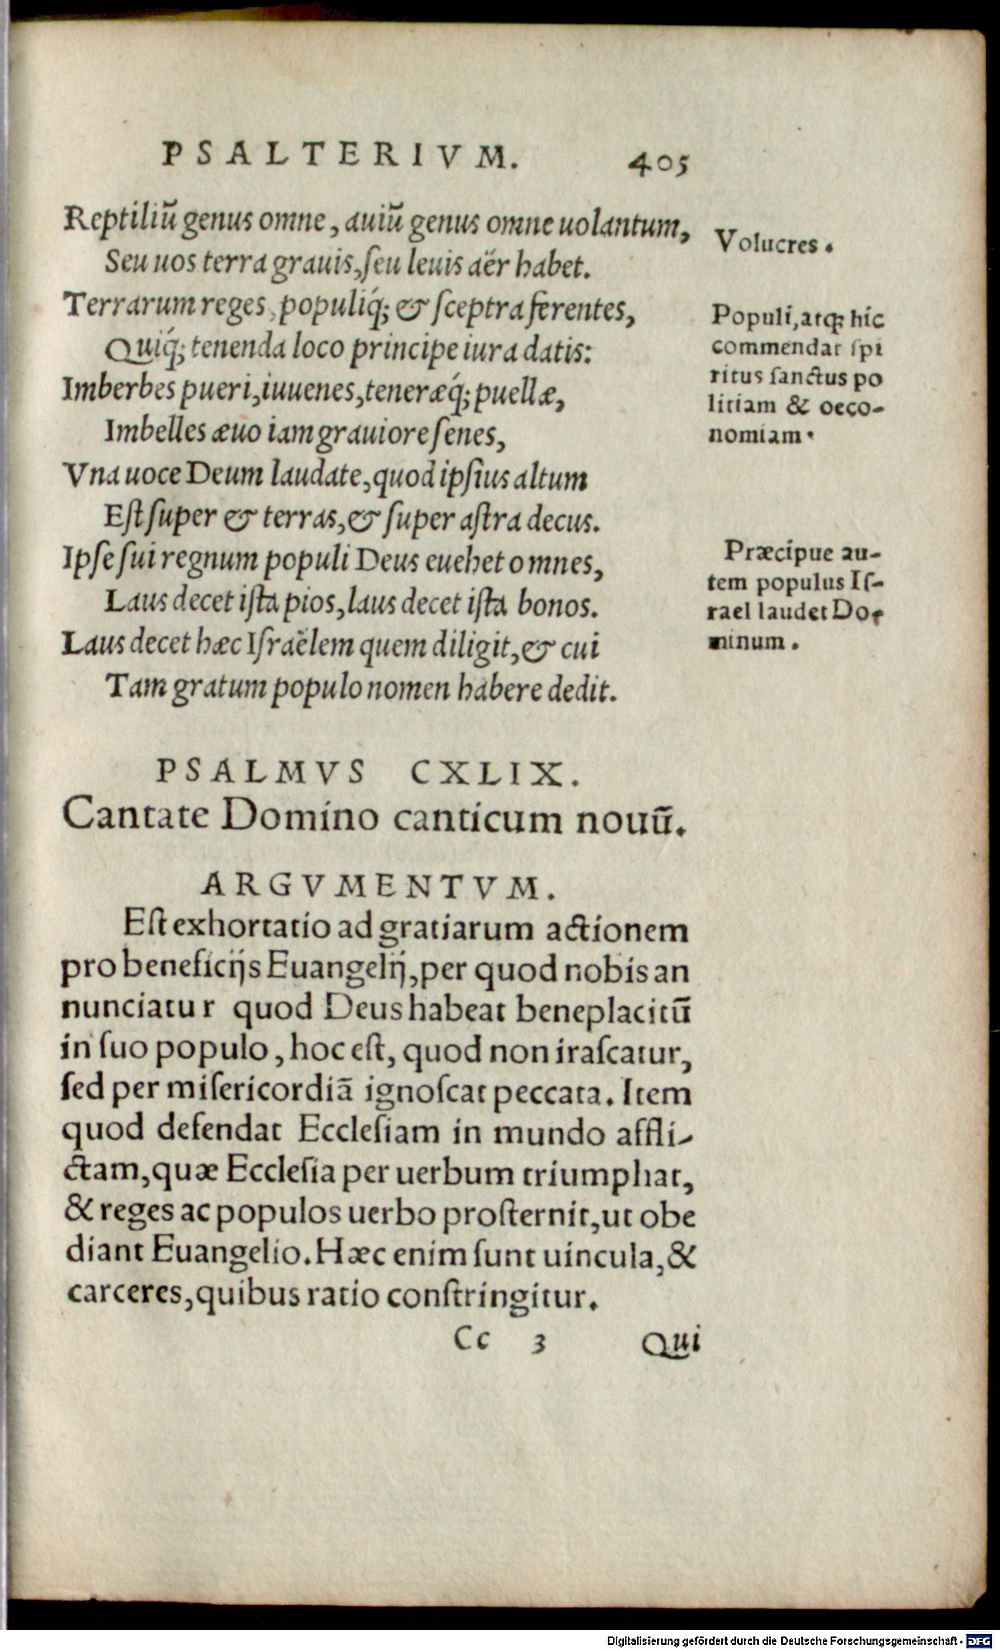 PSALTERIVM. 405
Reptiliũ genus omne, auiũ genus omne uolantum,
Seu uos terra grauis, ſeu leuis aër habet.
Terrarum reges, populiq́; & ſceptra ferentes,
Quiq́; tenenda loco principe iura datis:
Imberbes pueri, iuuenes, teneræq́; puellæ,
Imbelles æuo iam grauiore ſenes,
Vna uoce Deum laudate, quod ipſius altum
Eſt ſuper & terras, & ſuper aſtra decus.
Ipſe ſui regnum populi Deus euehet omnes,
Laus decet iſta pios, laus decet iſta bonos.
Laus decet hæc Iſraëlem quem diligit, & cui
Tam gratum populo nomen habere dedit.
Volucres.
Populi, atqꝫ hic
commendat ſpi
ritus ſanctus po
litiam & oeco-
nomiam.
Præcipue au-
tem populus Iſ-
rael laudet Do-
minum.
PSALMVS CXLIX.
Cantate Domino canticum nouũ.
ARGVMENTVM.
Eſt exhortatio ad gratiarum actionem
pro beneficijs Euangelij, per quod nobis an
nunciatur quod Deus habeat beneplacitũ
in ſuo populo, hoc eſt, quod non iraſcatur,
ſed per miſericordiã ignoſcat peccata. Item
quod defendat Eccleſiam in mundo affli-
ctam, quæ Eccleſia per uerbum triumphat,
& reges ac populos uerbo proſternit, ut obe
diant Euangelio. Hæc enim ſunt uincula, &
carceres, quibus ratio conſtringitur.
Cc 3 Qui
Digitalisierung gefördert durch die Deutsche Forschungsgemeinschaft - DFG